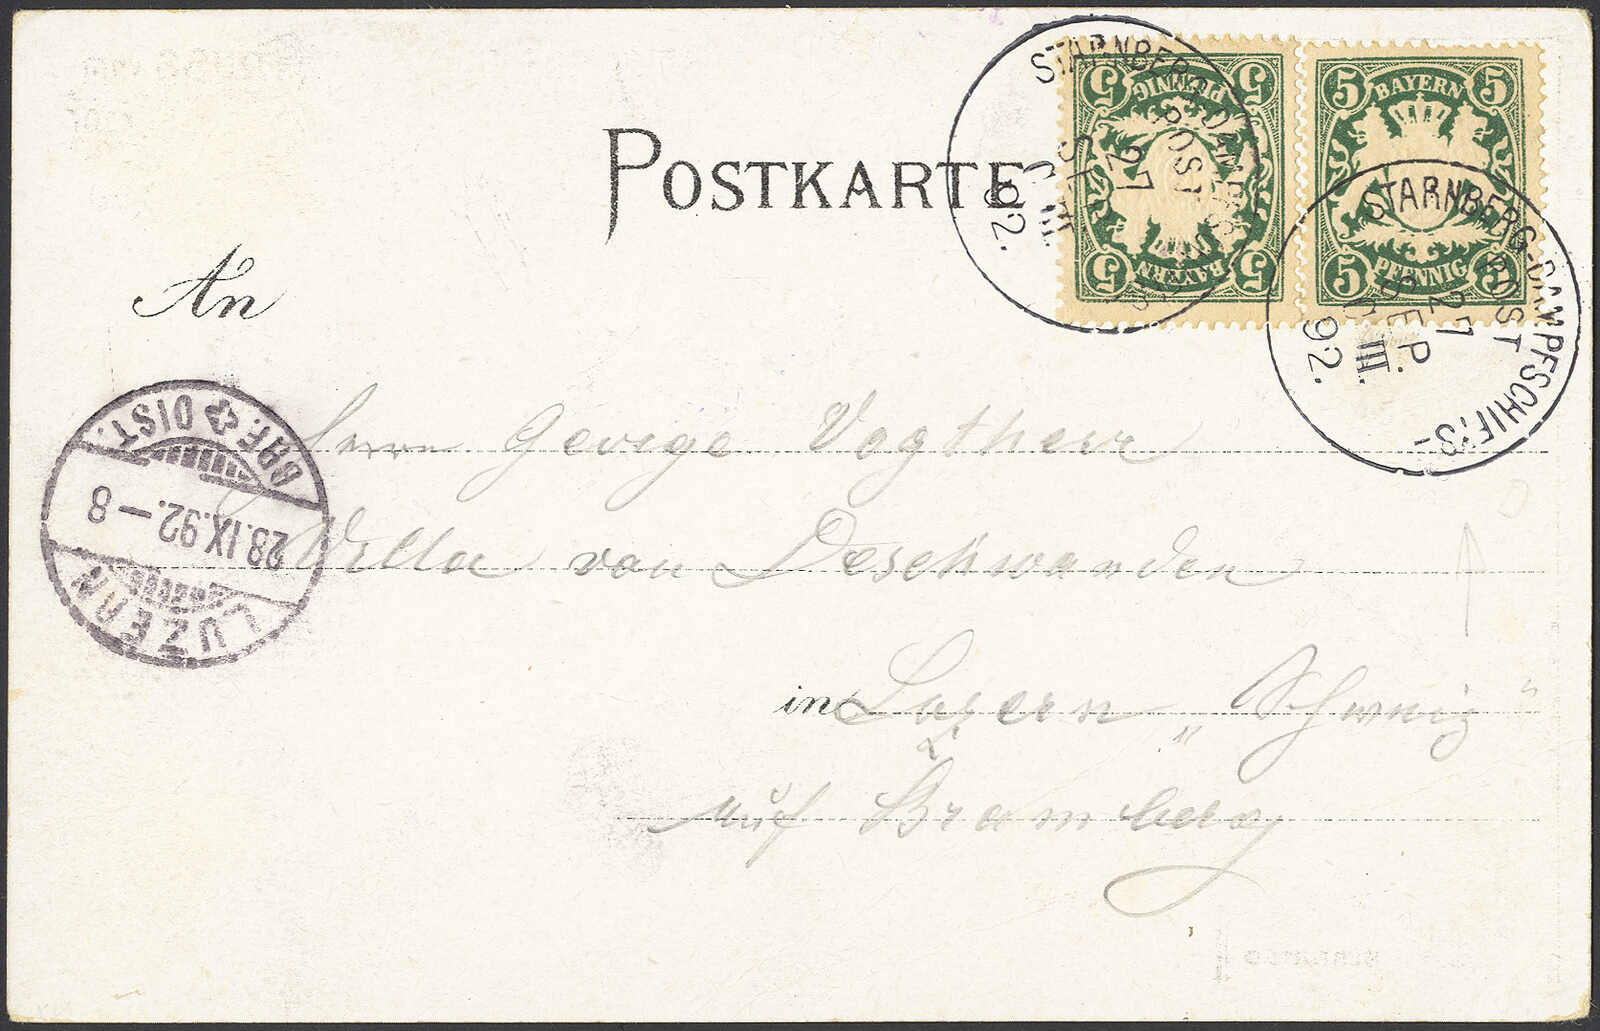 POSTKARTE
5 BAYERN 5
5 PFENNIG 5
5 BAYERN 5
5 PFENNIG 5
STARNBERG-DAMPFSCHIFFS-
POST
27
SEP.
C III.
92.
STARNBERG-DAMPFSCHIFFS-
POST
27
SEP.
C III.
92.
An
Herrn George Vogtherr
Villa von Deschwanden
in Luzern „Schweiz“
auf Bramberg
LUZERN
28.IX.92.–8
BRF. DIST.